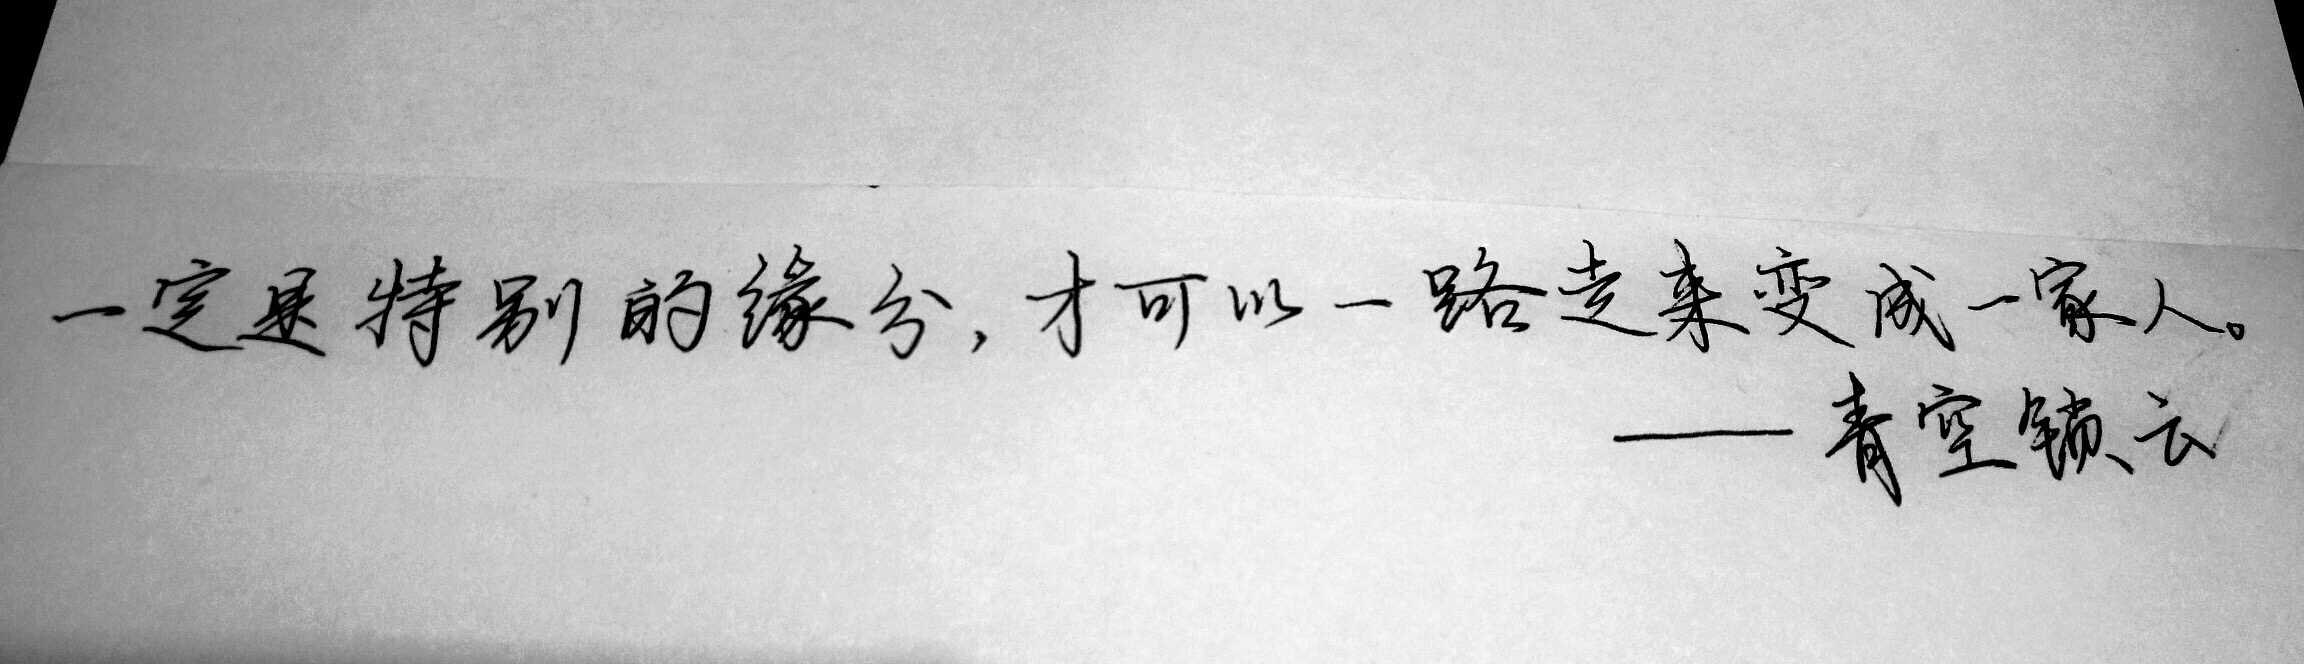 一定是特别的缘分，才可以一路走来变成一家人。
——青空锁云